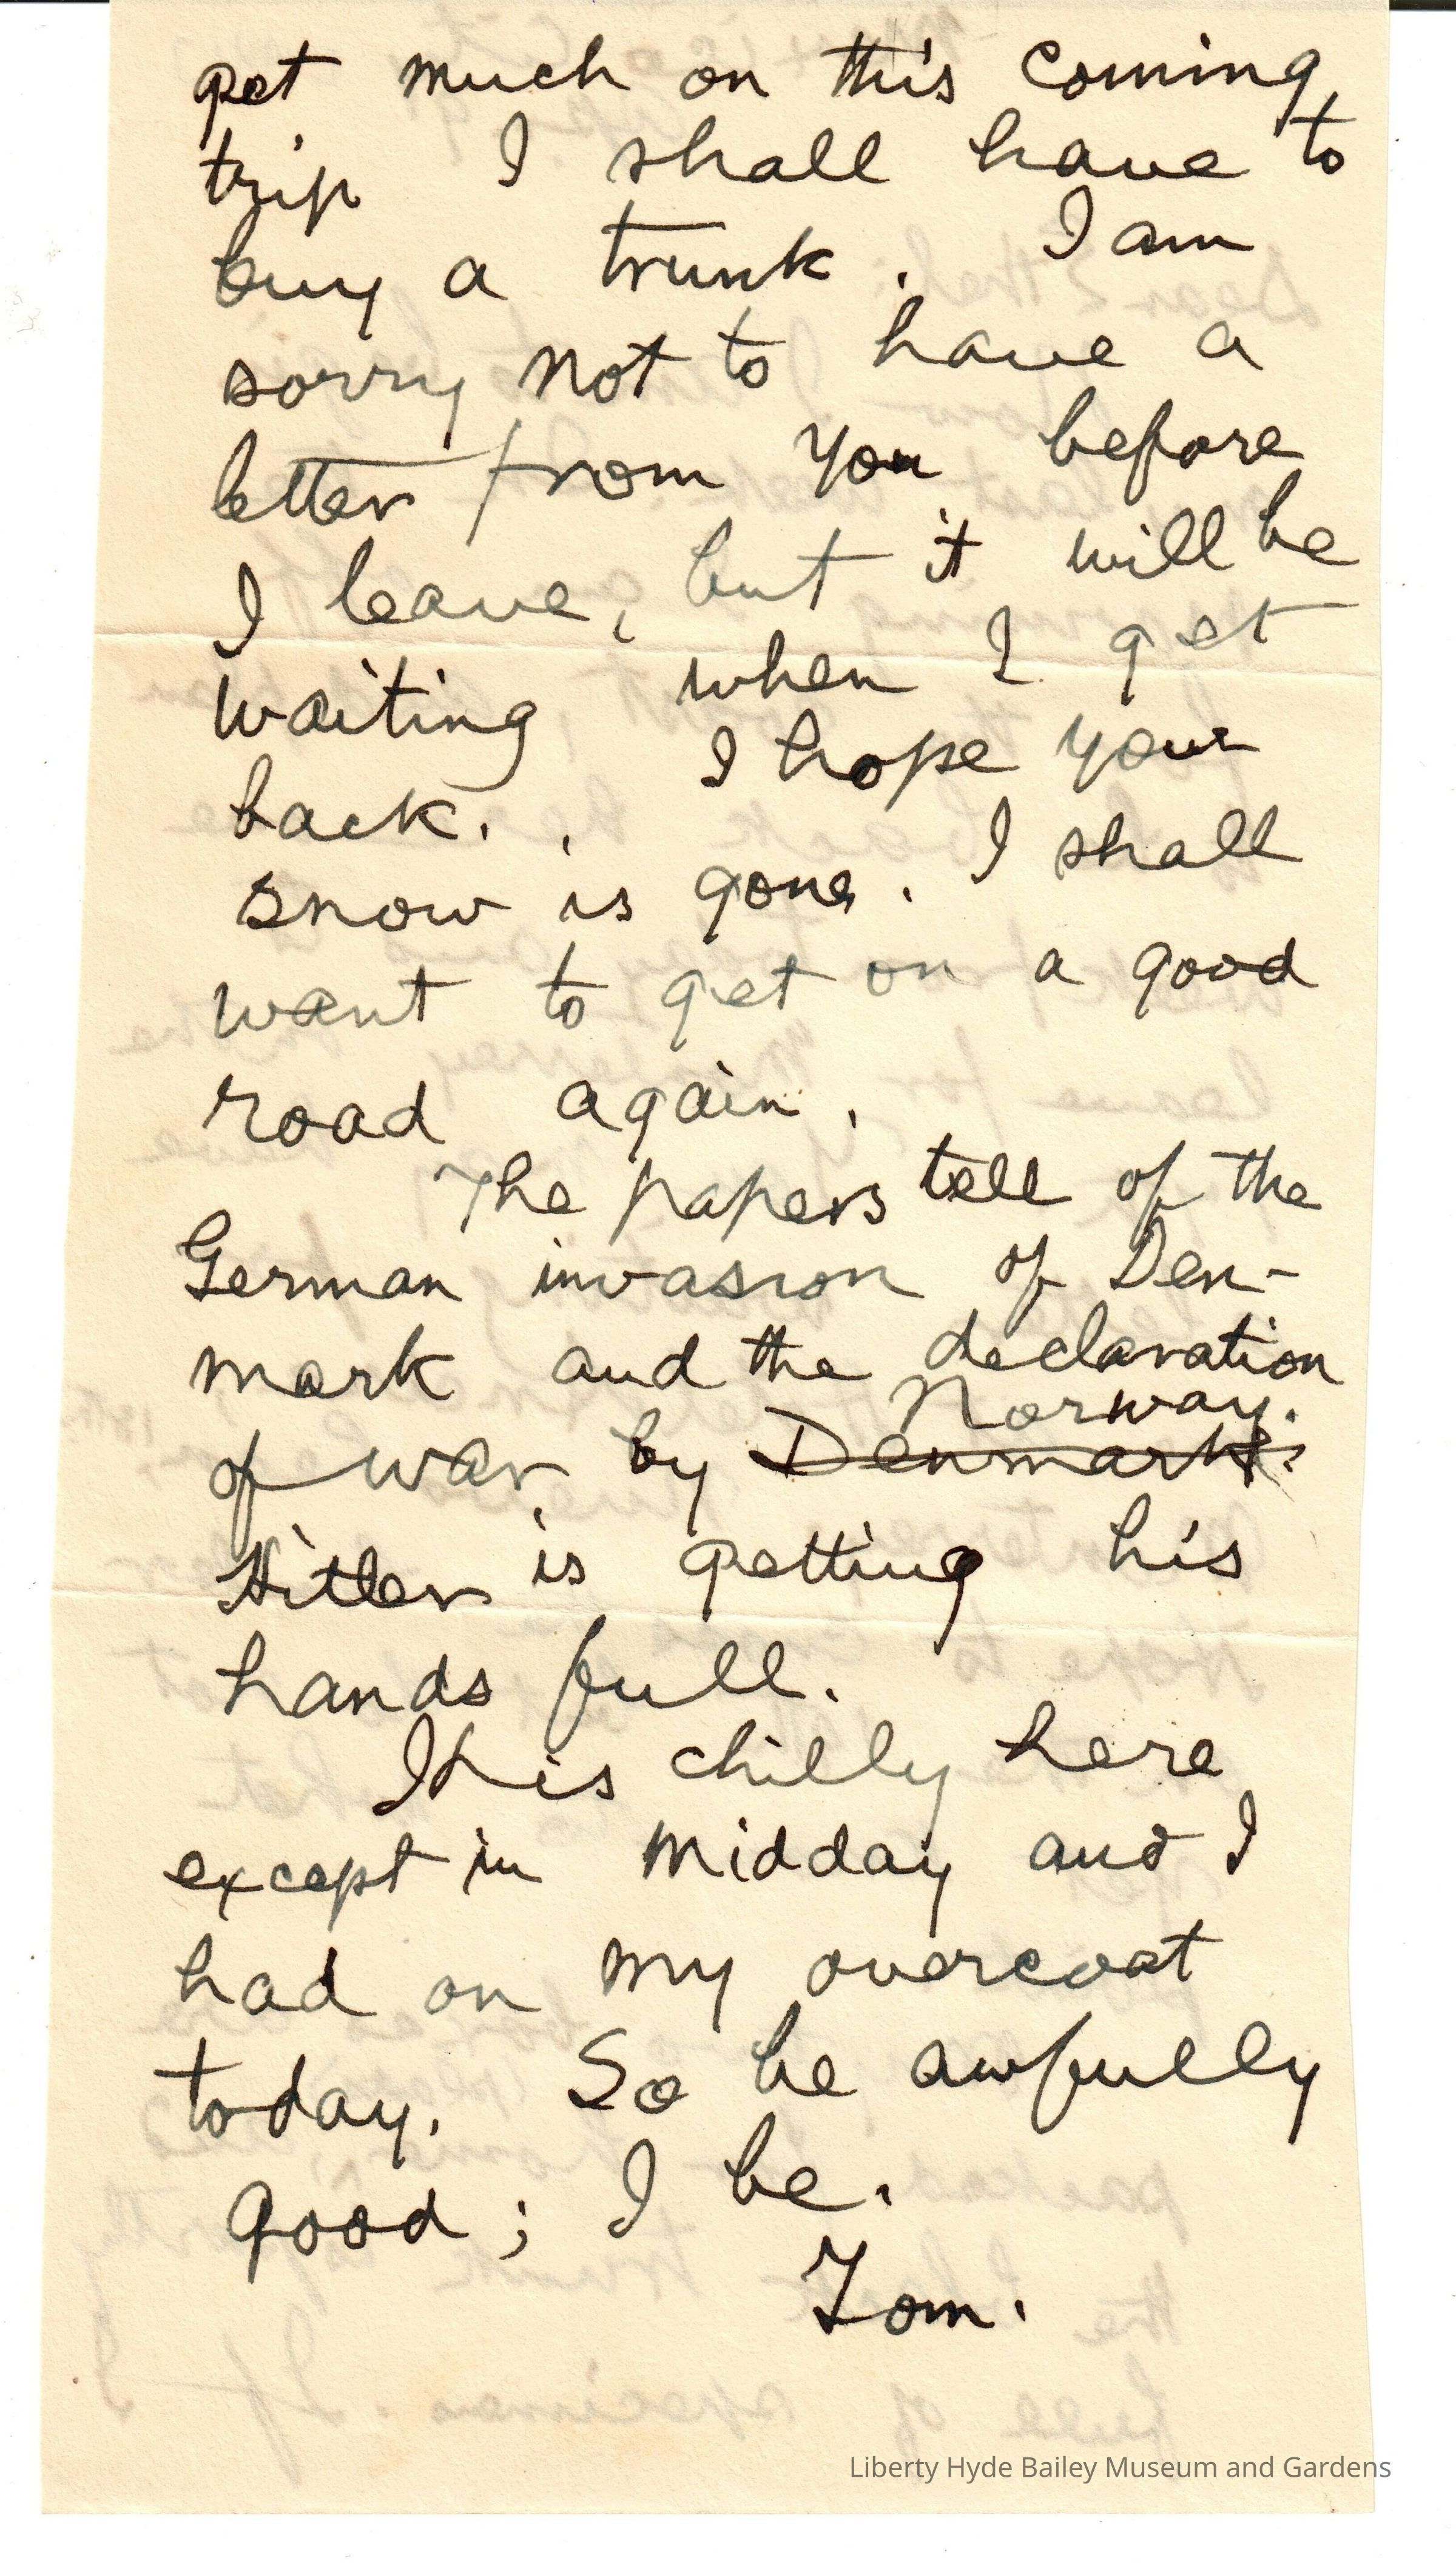 get much on this coming
trip I shall have to
buy a trunk. I am
sorry not to have a
letter from you before
I leave, but it will be
waiting when I get
back. I hope your
snow is gone. I shall
want to get on a good
road again.
The papers tell of the
German invasion of Den-
mark and the declaration
Norway.
of war by Denmark.
Hitler is getting his
hands full.
It is chilly here
except in midday and I
had on my overcoat
today. So be awfully
good; I be.
Tom.
Liberty Hyde Bailey Museum and Gardens